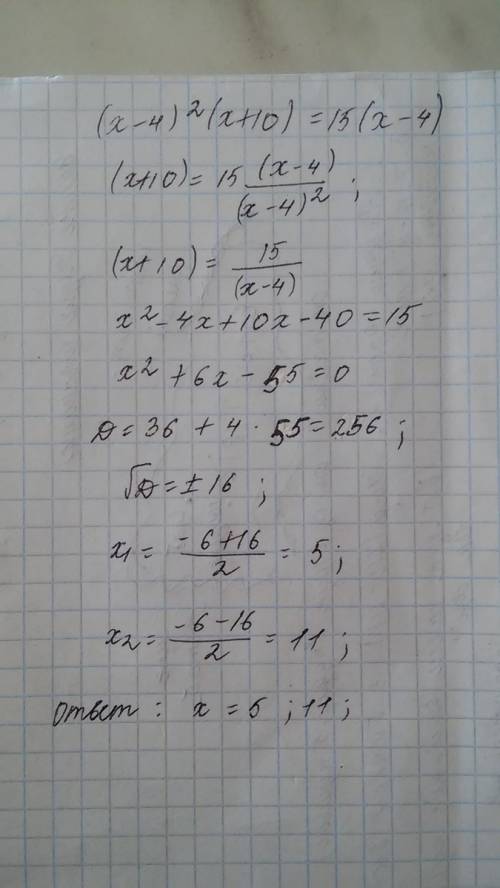 (x-4)²(x+10) = 15(x-4)
(x+10) = 15 (x-4)/(x-4)² ;
(x+10) = 15/(x-4)
x² - 4x + 10x - 40 = 15
x² + 6x - 55 = 0
D = 36 + 4 · 55 = 256 ;
√D = ± 16 ;
x₁ = (-6+16)/2 = 5 ;
x₂ = (-6-16)/2 = 11 ;
ответ : x = 5 ; 11 ;